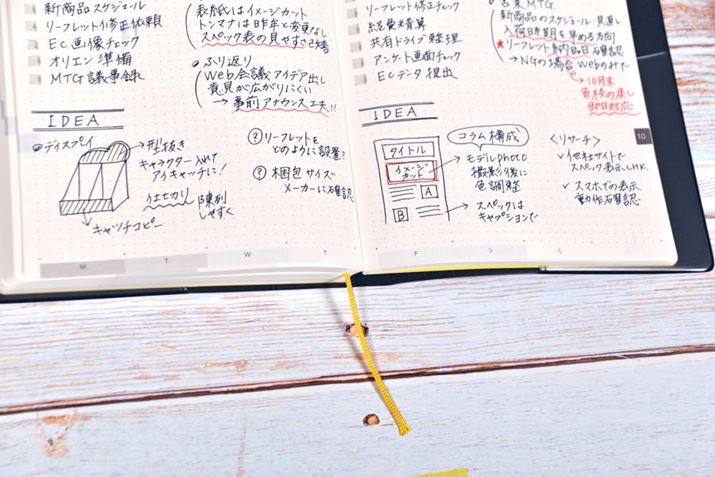 新商品スケジュール
リーフレット修正依頼
EC画像チェック
オリエン準備
MTG議事録
表紙はイメージカット
トンマナは昨年と変更なし
スペック表の見やすさ改善
●ふり返り
Web会議 アイデア出し
意見が広がりにくい
→事前アナウンス工夫!!
IDEA
●ディスプレイ
→型抜き
キャラクター入れて
アイキャッチに!
仕切り
陳列
しやすく
キャッチコピー
? リーフレットを
どのように設置?
? 梱包サイズ
メーカーに確認
M
T
W
T
リーフレット修正チェック
経費精算
共有ドライブ整理
アンケート画面チェック
ECデータ提出
営業MTG
新商品のスケジュール見直し
入荷時期を早める方向
★リーフレット納品日確認
→NGの場合Webのみで
→10月末
色校の戻し
即日対応
IDEA
タイトル
イメージ
カット
A
B
コラム構成
→モデルphoto
撮影後に
色調整
→スペックは
キャプションで
<リサーチ>
✓他社サイトで
スペック表示CHK.
✓スマホでの表示
動作確認
10
F
S
S